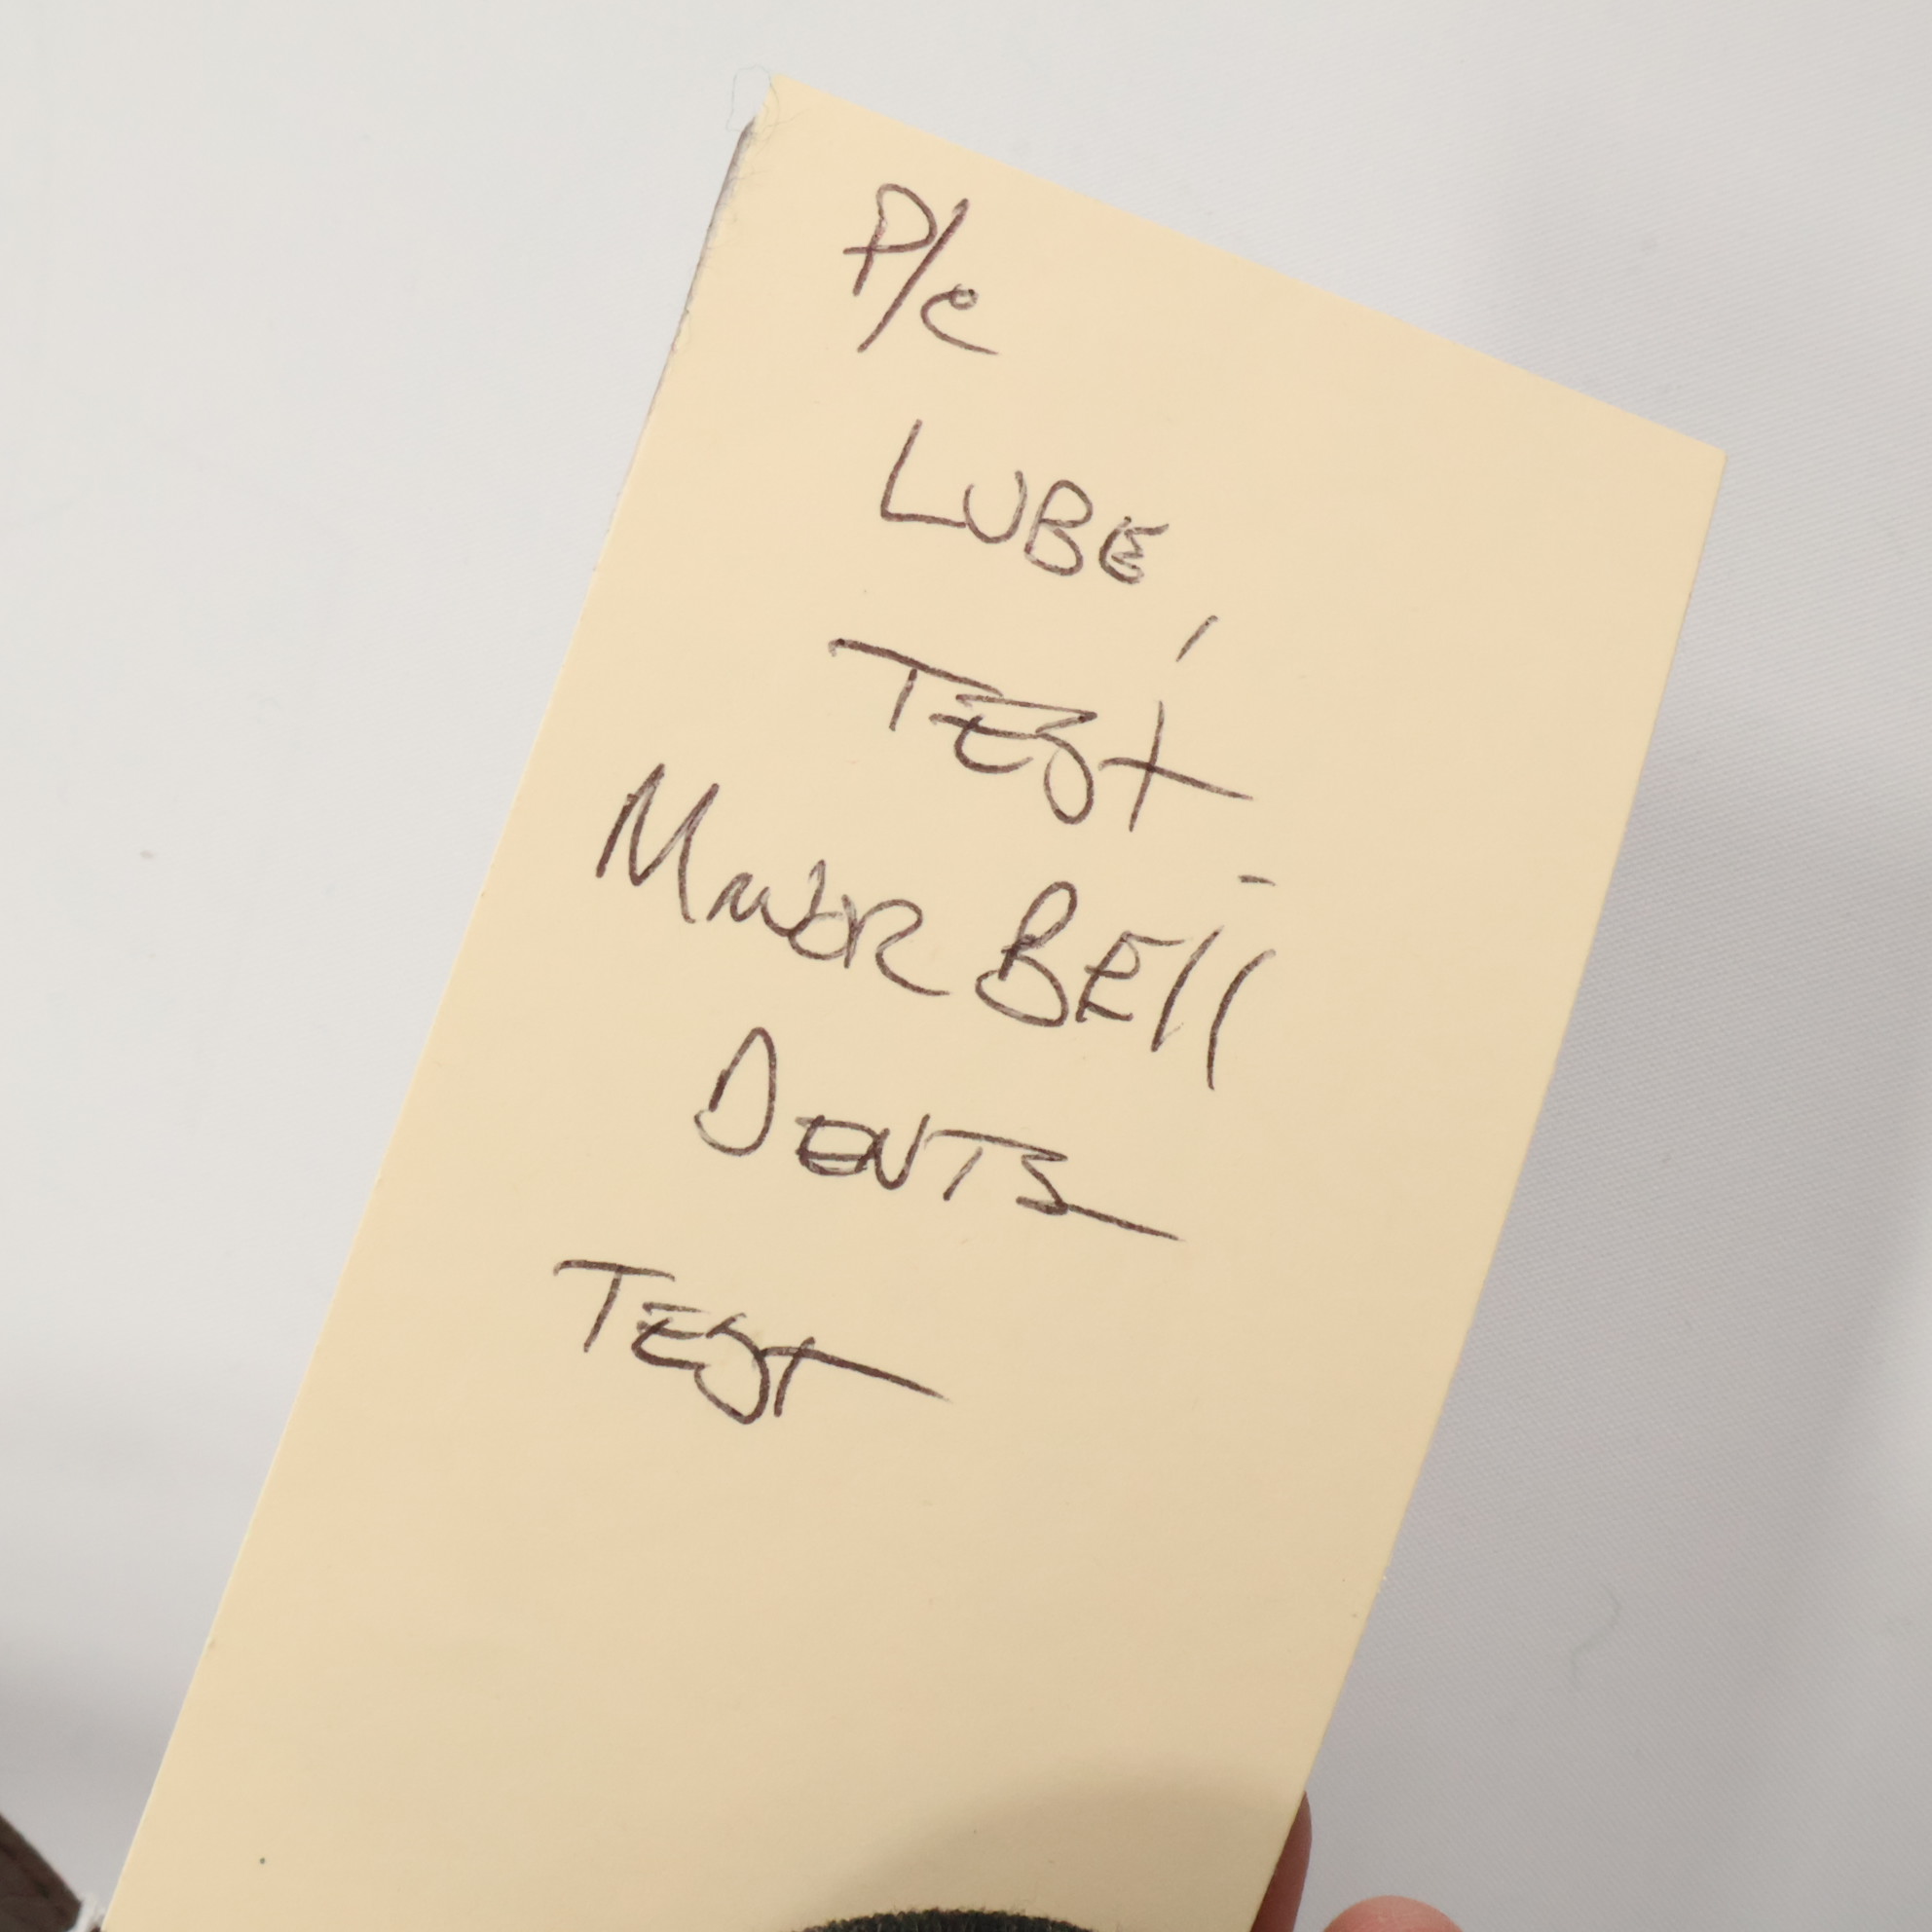 P/c
LUBE,
TEST -
MINOR BELL
DENTS
TEST